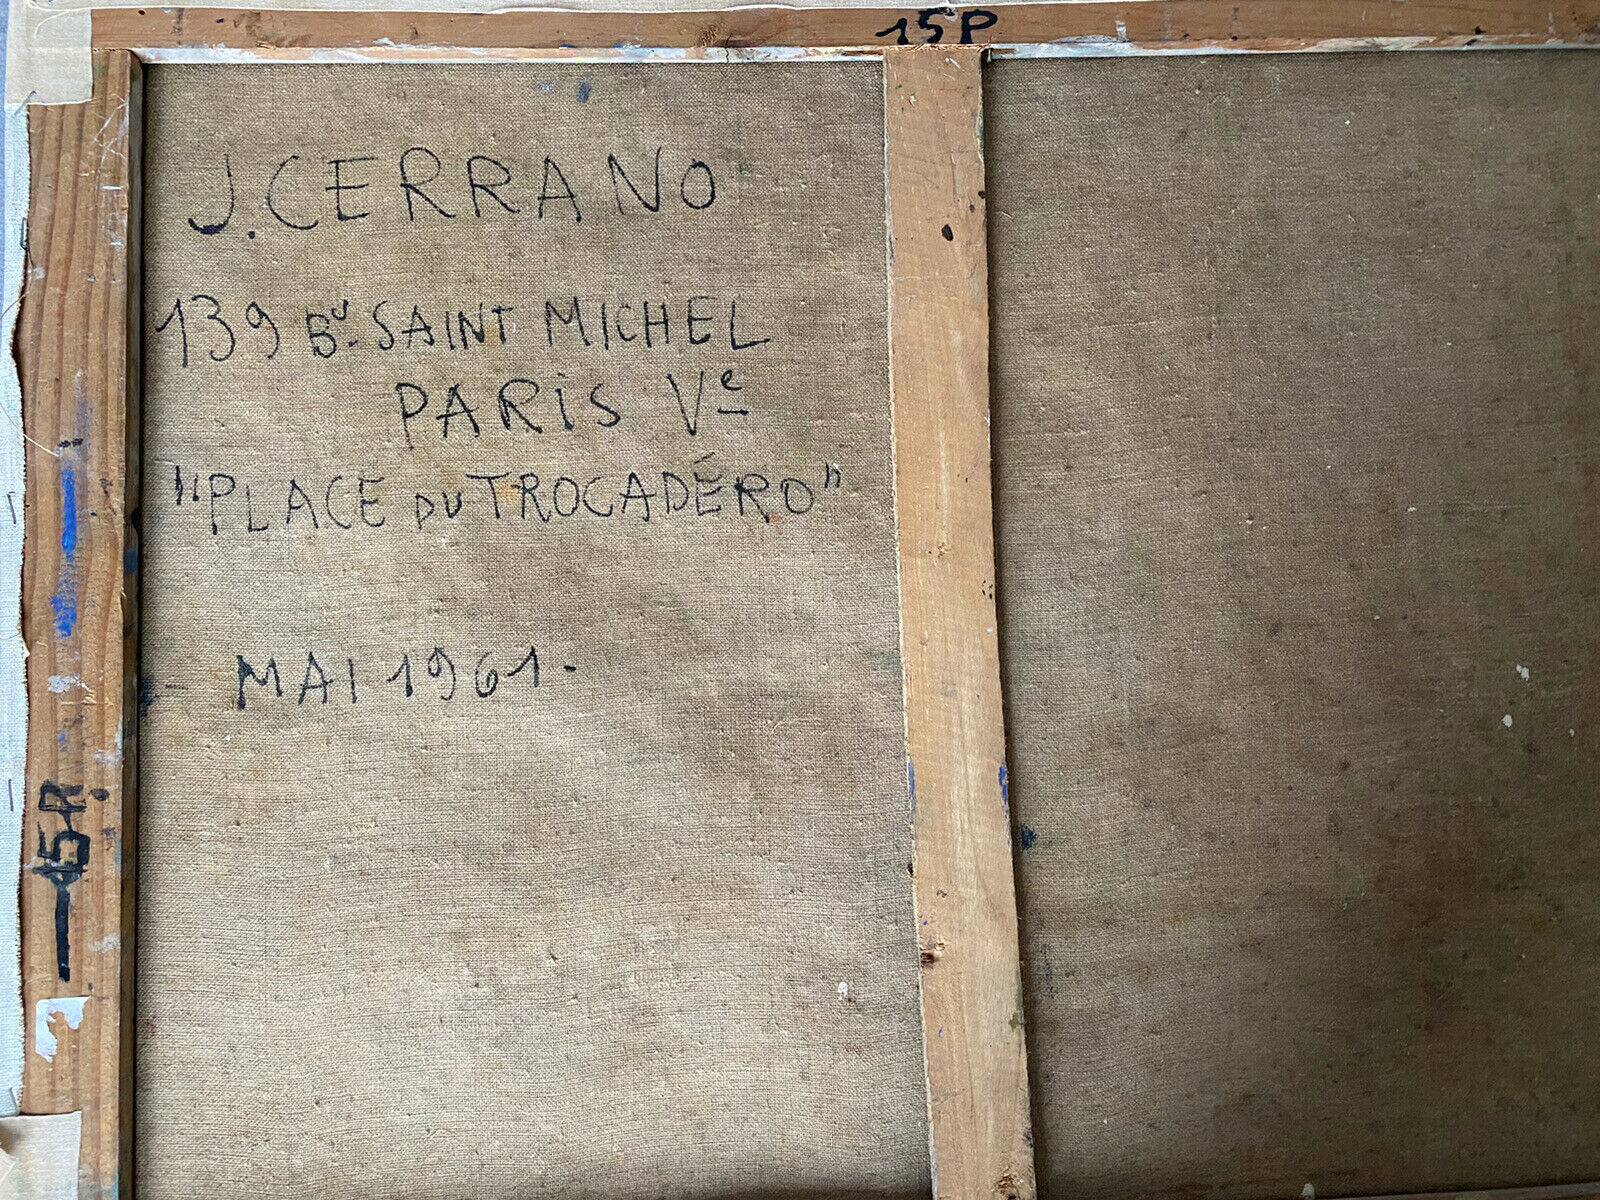 15P
J. CERRANO
139 Bd. SAINT MICHEL
PARIS Ve
"PLACE DU TROCADÉRO"
MAI 1961.